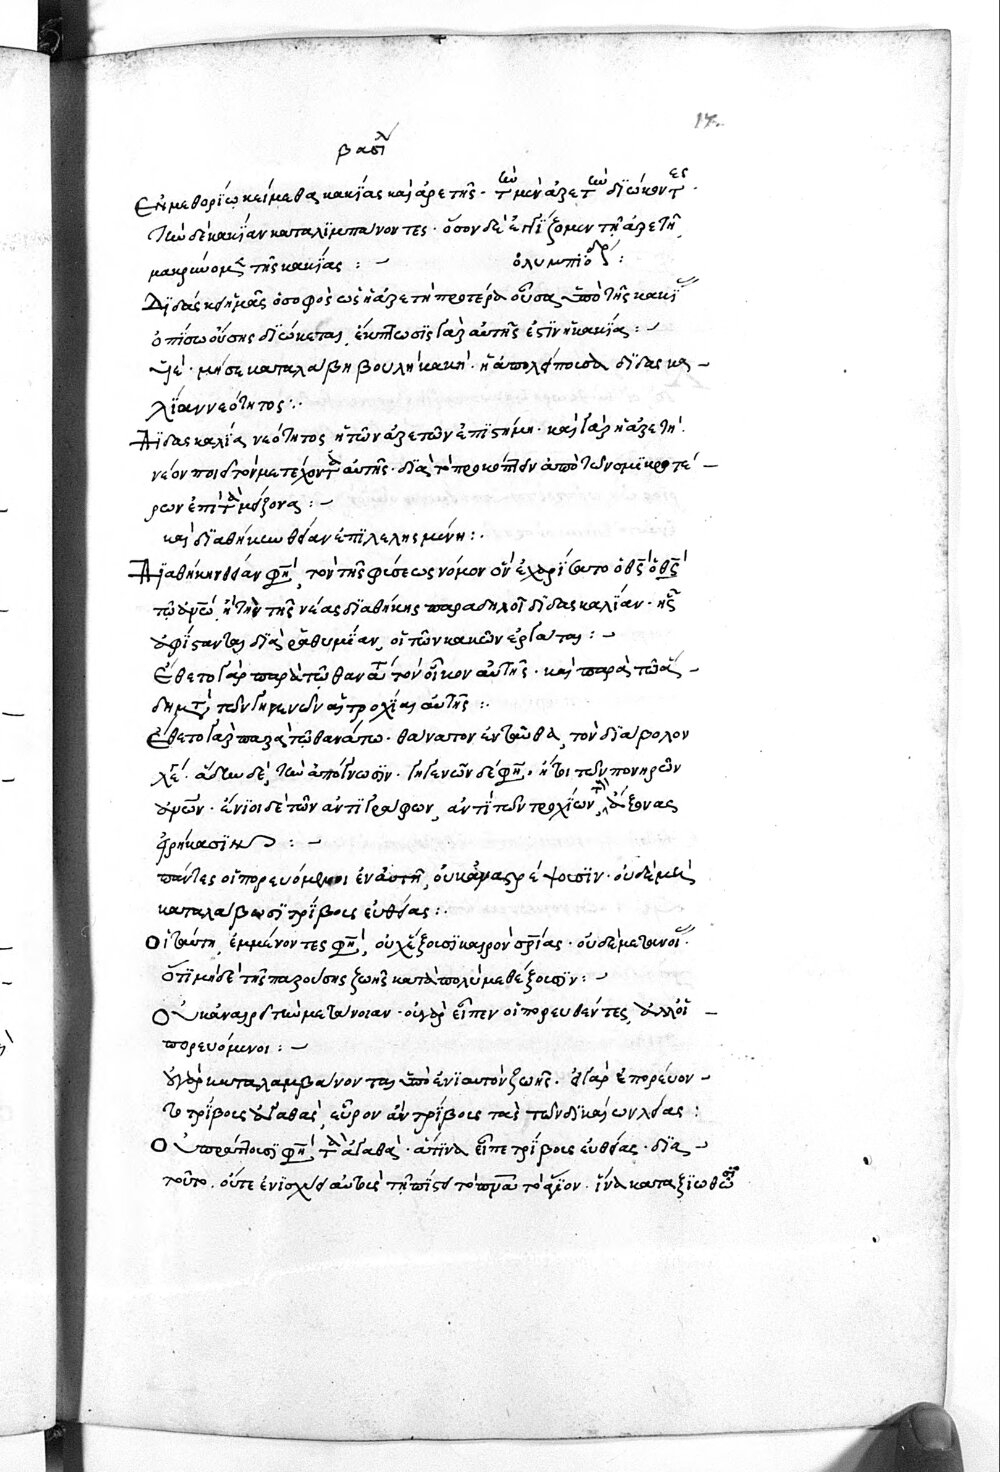 17.
βασιλ
Ἐν μεθορίῳ κείμεθα κακίας καὶ ἀρετῆς· τὴν μὲν ἀρετὴν διώκοντες·
τὴν δὲ κακίαν καταλιμπάνοντες· ὅσον δὲ ἐγγίζομεν τῇ ἀρετῇ,
μακρύνομεθα τῆς κακίας : ~ ὀλυμπιοδώρου :
Διδάσκει ἡμᾶς ὁ σοφὸς ὡς ἡ ἀρετὴ προτέρα οὖσα, ὑπὸ τῆς κακίας
ὀπίσω οὔσης διώκεται, ἔκπτωσις γὰρ αὐτῆς ἐστιν ἡ κακία : ~
υἱέ· μή σε καταλάβῃ βουλὴ κακὴ· ἡ ἀπολείπουσα διδασκα
λίαν νεότητος :·
Διδασκαλία νεότητος ἡ τῶν ἀρετῶν ἐπιστήμη· καὶ γὰρ ἡ ἀρετὴ
νέον ποιεῖ τὸν μετέχοντα αὐτῆς· διὰ τὸ προκόπτειν ἀπὸ τῶν σμικροτέ
ρων ἐπὶ τὰ μείζονα : ~
καὶ διαθήκην θείαν ἐπιλελησμένη :·
Διαθήκην θείαν φησὶ, τὸν τῆς φύσεως νόμον ὃν ἐχαρίσατο ὁ θεὸς
τῷ ἀνθρώπῳ, ἢ τὴν τῆς νέας διαθήκης παραδηλοῖ διδασκαλίαν· ἧς
ἀφίστανται διὰ ῥαθυμίαν, οἱ τῶν κακῶν ἐργάται : ~
Ἔθετο γὰρ παρὰ τῷ θανάτῳ τὸν οἶκον αὐτῆς· καὶ παρὰ τῷ ᾅ
δῃ μετὰ τῶν γηγενῶν αἱ τροχίαι αὐτῆς :·
Ἔθετο γὰρ παρὰ τῷ θανάτῳ· θάνατον ἐνταῦθα, τὸν διάβολον
λέγει· ᾅδην δὲ, τὴν ἀπόγνωσιν· γηγενῶν δέ φησι, ἤτοι τῶν πονηρῶν
ἀνθρώπων· ἔνιοι δὲ τῶν ἀντιγράφων, ἀντὶ τῶν τροχιῶν, τοὺς ἄξονας
εἰρήκασιν : ~
πάντες οἱ πορευόμενοι ἐν αὐτῇ, οὐκ ἀναστρέψουσιν· οὐδὲ μὴ
καταλάβωσι τρίβους εὐθείας :·
Οἱ ταύτῃ ἐμμένοντες φησὶ, οὐχ ἕξουσι καιρὸν σωτηρίας· οὐδὲ μετανοίας·
ὅτι μηδὲ τῆς παρούσης ζωῆς κατὰ πολὺ μεθέξουσιν : ~
Οὐκ ἀναιρεῖ τὴν μετάνοιαν· οὐ γὰρ εἶπεν οἱ πορευθέντες, ἀλλ' οἱ
πορευόμενοι : ~
οὐ γὰρ καταλαμβάνονται ὑπὸ ἐνιαυτῶν ζωῆς· εἰ γὰρ ἐπορεύον
το τρίβους ἀγαθὰς, εὗρον ἂν τρίβους τὰς τῶν δικαίων λείας :
Οὐ πράττουσι φησὶ, τὰ ἀγαθὰ· ἅτινα εἶπε τρίβους εὐθείας· διὰ
τοῦτο, οὔτε ἐνισχύει αὐτοὺς τῇ πίστει τὸ πνεῦμα τὸ ἅγιον· ἵνα καταξιωθῶσι